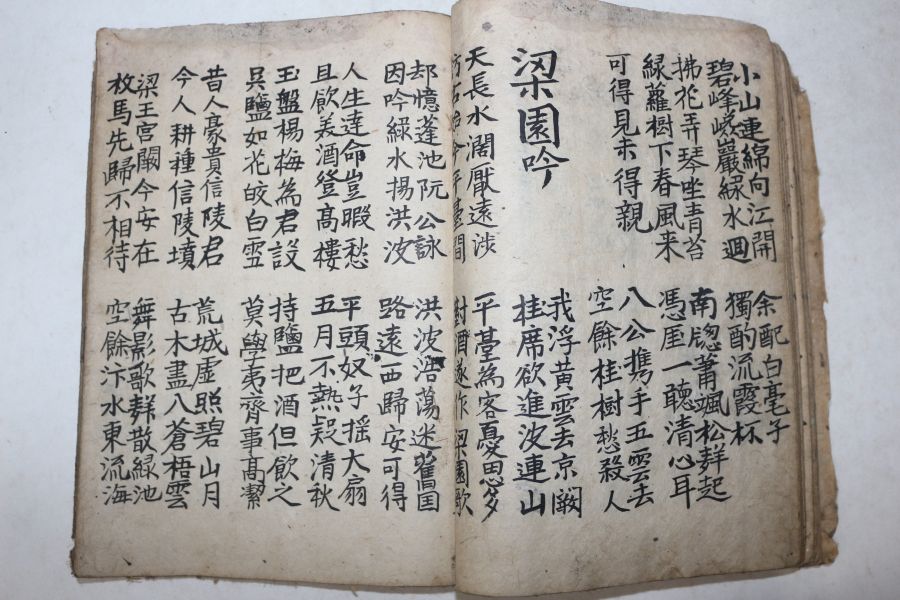 小山連綿向江開
碧峰巉巖綠水迴
余配白毫子
獨酌流霞杯
拂花弄琴坐青苔
綠蘿樹下春風来
南牕蕭颯松群起
憑崖一聽清心耳
可得見未得親
八公攜手五雲去
空餘桂樹愁殺人
梁園吟
我浮黃雲去京闕
桂席欲進波連山
天長水濶厭遠涉
訪古始今平臺間
平臺為客憂思多
對酒遂作梁園歌
却憶蓬池阮公詠
因吟綠水揚洪波
洪波浩蕩迷舊国
路遠西歸安可得
人生達命豈暇愁
且飲美酒登高樓
平頭奴子搖大扇
五月不熱疑清秋
玉盤楊梅為君設
吳鹽如花皎白雪
持鹽把酒但飲之
莫學夷齊事髙潔
昔人豪貴信陵君
今人耕種信陵墳
荒城虛照碧山月
古木盡入蒼梧雲
梁王宮闕今安在
枚馬先歸不相待
舞影歌群散緑池
空餘汴水東流海